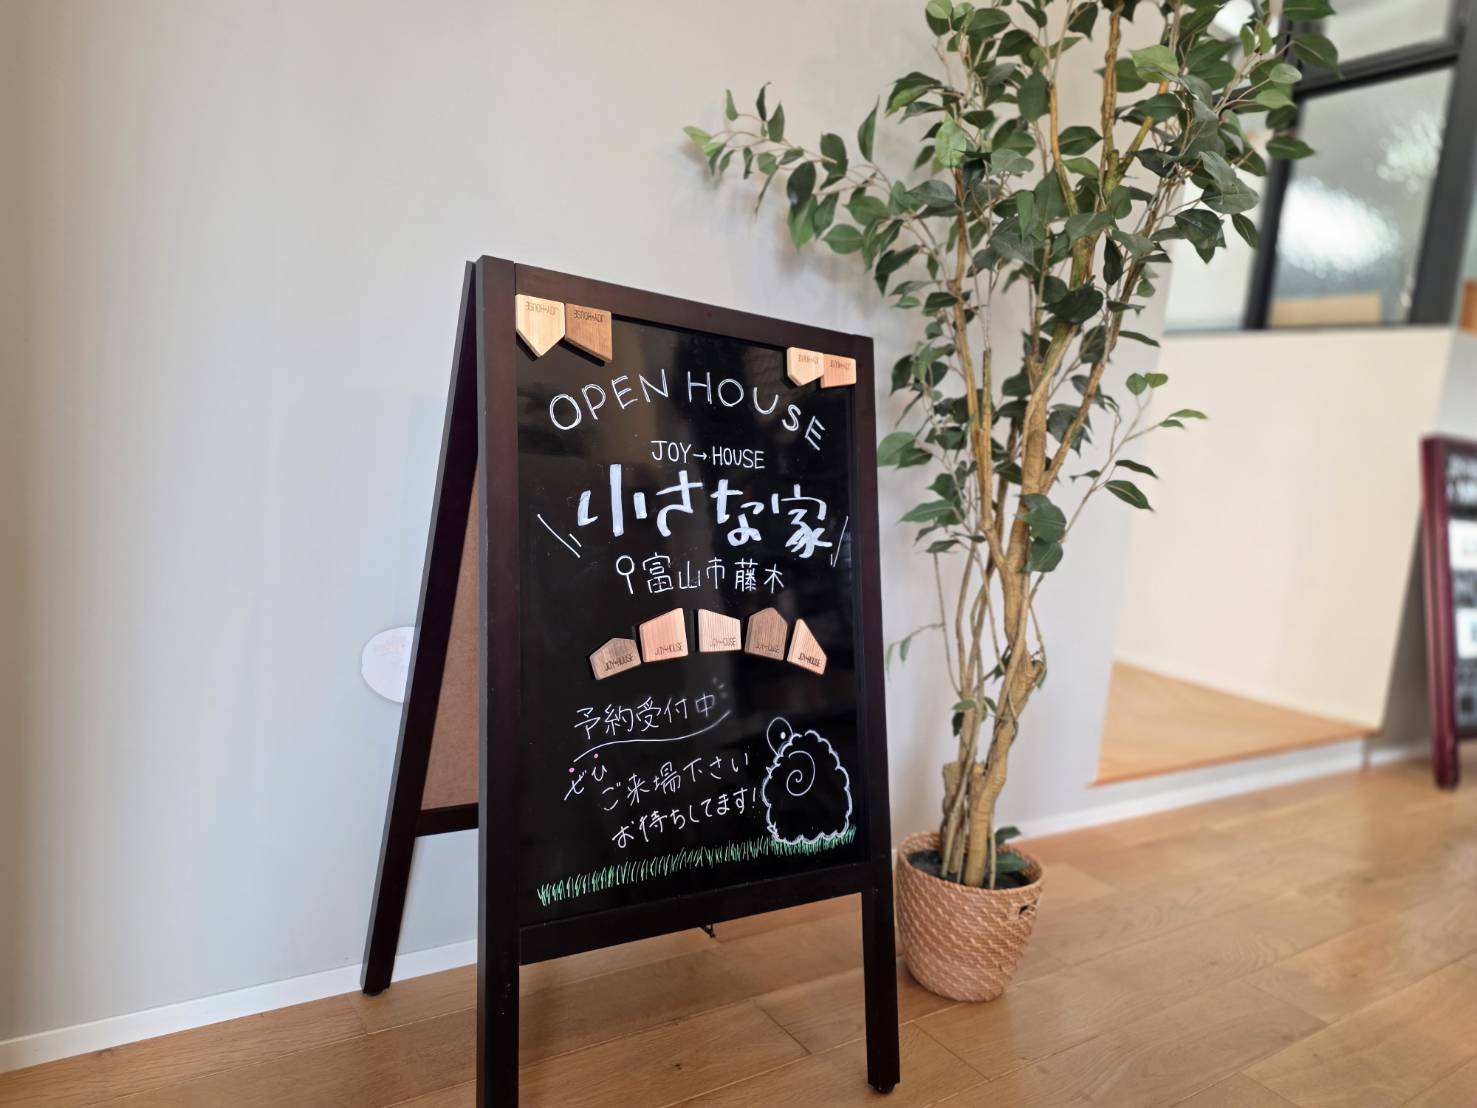 JOY→HOUSE
JOY→HOUSE
JOY→HOUSE
JOY→HOUSE
OPEN HOUSE
JOY→HOUSE
小さな家
富山市藤木
JOY→HOUSE
JOY→HOUSE
JOY→HOUSE
JOY→HOUSE
JOY→HOUSE
予約受付中
ぜひ
ご来場下さい
お待ちしてます!